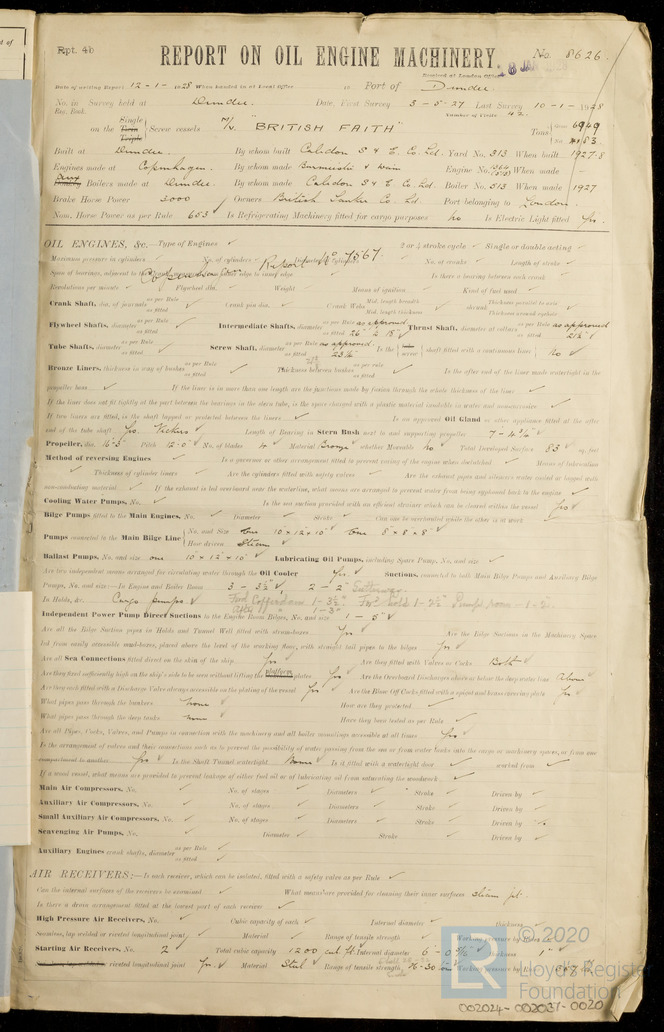 Rpt. 4b
REPORT ON OIL ENGINE MACHINERY.
No. 8626.
Received at London Office
Date of writing Report 12-1-1928 When handed in at Local Office 19 Port of Dundee
No. in Survey held at Dundee. Date, First Survey 3-5-27 Last Survey 10-1-1928
Reg. Book. Number of Visits 42.
on the Single Screw vessels M/V. "BRITISH FAITH" Tons Gross 6949
Built at Dundee. By whom built Caledon S & E. Co. Ld. Yard No. 313 When built 1927-8
Engines made at Copenhagen. By whom made Burmeister & Wain Engine No. When made
Boilers made at Dundee. By whom made Caledon S & E. Co. Ld. Boiler No. 313 When made 1927
Brake Horse Power 3000 Owners British Tanker Co. Ld. Port belonging to London.
Nom. Horse Power as per Rule 653 Is Refrigerating Machinery fitted for cargo purposes no Is Electric Light fitted Yes.
OIL ENGINES, &c.—Type of Engines 2 or 4 stroke cycle Single or double acting
Maximum pressure in cylinders No. of cylinders No. of cranks Length of stroke
Copenhagen Report No. 7567
Span of bearings, adjacent to the Is there a bearing between each crank
Revolutions per minute Flywheel dia. Weight Means of ignition Kind of fuel used
Crank Shaft, dia. of journals as per Rule as fitted Crank pin dia. Crank Webs Mid. length breadth Mid. length thickness Thickness parallel to axis Thickness around eyehole
Flywheel Shafts, diameter as per Rule as fitted Intermediate Shafts, diameter as per Rule as approved as fitted Thrust Shaft, diameter at collars as per Rule as approved as fitted
Tube Shafts, diameter as per Rule as fitted Screw Shaft, diameter as per Rule as approved as fitted Is the screw shaft fitted with a continuous liner No
Bronze Liners, thickness in way of bushes as per Rule as fitted Thickness between bushes as per rule as fitted Is the after end of the liner made watertight in the
propeller boss If the liner is in more than one length are the junctions made by fusion through the whole thickness of the liner
If the liner does not fit tightly at the part between the bearings in the stern tube, is the space charged with a plastic material insoluble in water and non-corrosive
If two liners are fitted, is the shaft lapped or protected between the liners Is an approved Oil Gland or other appliance fitted at the after
end of the tube shaft Yes. Vickers Length of Bearing in Stern Bush next to and supporting propeller
Propeller, dia. 16-3 Pitch 12-0 No. of blades 4 Material Bronze whether Moveable no Total Developed Surface 83 sq. feet
Method of reversing Engines Is a governor or other arrangement fitted to prevent racing of the engine when declutched Means of lubrication
Thickness of cylinder liners Are the cylinders fitted with safety valves Are the exhaust pipes and silencers water cooled or lagged with
non-conducting material If the exhaust is led overboard near the waterline, what means are arranged to prevent water from being syphoned back to the engine
Cooling Water Pumps, No. Is the sea suction provided with an efficient strainer which can be cleared within the vessel Yes
Bilge Pumps fitted to the Main Engines, No. Diameter Stroke Can one be overhauled while the other is at work
Pumps connected to the Main Bilge Line No. and Size One 10"x12"x10" One 8"x8"x8" How driven Steam
Ballast Pumps, No. and size one 10"x12"x10" Lubricating Oil Pumps, including Spare Pump, No. and size
Are two independent means arranged for circulating water through the Oil Cooler Yes. Suctions, connected to both Main Bilge Pumps and Auxiliary Bilge
Pumps, No. and size:—In Engine and Boiler Room 3 - 3½" 2 - 2"
In Holds, &c. Cargo pumps Ford Cofferdam 1-3½". Ford hold 1-2½" Pump room - 1-2.
Independent Power Pump Direct Suctions to the Engine Room Bilges, No. and size 1 - 5"
Are all the Bilge Suction pipes in Holds and Tunnel Well fitted with strum-boxes Yes Are the Bilge Suctions in the Machinery Space
led from easily accessible mud-boxes, placed above the level of the working floor, with straight tail pipes to the bilges Yes
Are all Sea Connections fitted direct on the skin of the ship Yes Are they fitted with Valves or Cocks Both
Are they fixed sufficiently high on the ship's side to be seen without lifting the platform plates Yes Are the Overboard Discharges above or below the deep water line Above
Are they each fitted with a Discharge Valve always accessible on the plating of the vessel Yes Are the Blow Off Cocks fitted with a spigot and brass covering plate Yes
What pipes pass through the bunkers None How are they protected
What pipes pass through the deep tanks None Have they been tested as per Rule
Are all Pipes, Cocks, Valves, and Pumps in connection with the machinery and all boiler mountings accessible at all times Yes
Is the arrangement of valves and their connections such as to prevent the possibility of water passing from the sea or from water tanks into the cargo or machinery spaces, or from one
compartment to another Yes Is the Shaft Tunnel watertight None Is it fitted with a watertight door worked from
If a wood vessel, what means are provided to prevent leakage of either fuel oil or lubricating oil from saturating the woodwork
Main Air Compressors, No. No. of stages Diameters Stroke Driven by
Auxiliary Air Compressors, No. No. of stages Diameters Stroke Driven by
Small Auxiliary Air Compressors, No. No. of stages Diameters Stroke Driven by
Scavenging Air Pumps, No. Diameter Stroke Driven by
Auxiliary Engines crank shafts, diameter as per Rule as fitted
AIR RECEIVERS:—Is each receiver, which can be isolated, fitted with a safety valve as per Rule
Can the internal surfaces of the receivers be examined What means are provided for cleaning their inner surfaces steam jet.
Is there a drain arrangement fitted at the lowest part of each receiver
High Pressure Air Receivers, No. Cubic capacity of each Internal diameter thickness
Seamless, lap welded or riveted longitudinal joint Material Range of tensile strength Working pressure by Rules
Starting Air Receivers, No. 2 Total cubic capacity 1200 cub. ft. Internal diameter thickness 1"
riveted longitudinal joint Yes. Material Steel Range of tensile strength Working pressure by Rules
© 2020
Lloyd's Register
Foundation
LR
002024-002037-0020